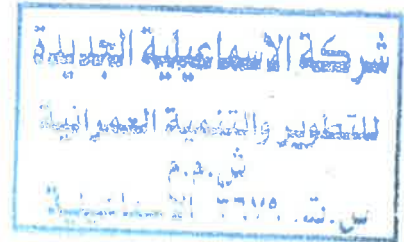 شركة الاسماعيلية الجديدة
للتطوير والتنمية العمرانية
ش.م.م
س.ت. الاسماعيلية